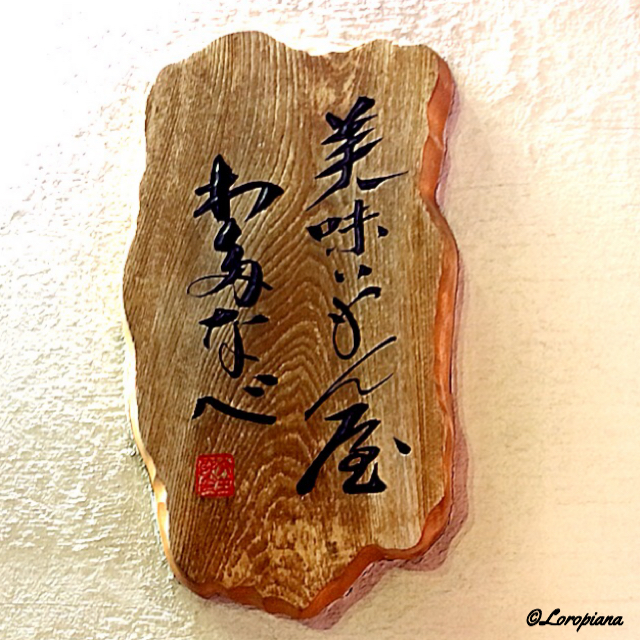 美味いもん屋
わたなべ
©Loropiana